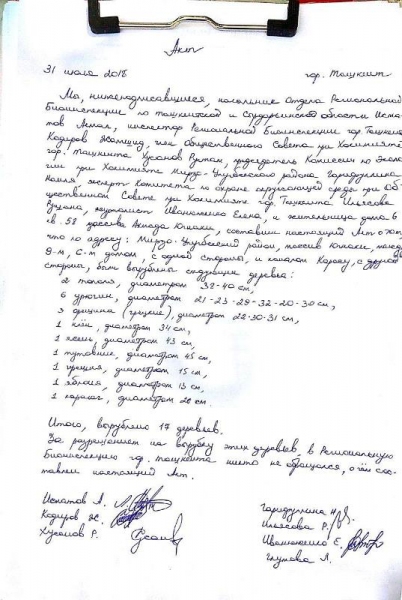 Акт
31 июля 2018 гор. Ташкент
Мы, нижеподписавшиеся, начальник Отдела Региональной
Биоинспекции по Ташкентской и Сырдарьинской области Испа-
тов Асман, инспектор Региональной Биоинспекции гор. Ташкента
Кадыров Жамшид, член общественного Совета при Хокимияте
гор. Ташкента Хусанов Рустам, председатель Комиссии по эколо-
гии при Хокимияте Мирзо-Улугбекского района Гарифуллина
Наиля, эксперт Комитета по охране окружающей среды при Об-
щественном Совете при Хокимияте гор. Ташкента Ильясова
журналист Ивашченко Елена, и жительница дома 6
кв. 58 массива составили настоящий Акт о том,
что по адресу: Мирзо-Улугбекский район, массив
с одной стороны, и каналом Карасу, с другой
стороны, были вырублены следующие деревья:
2 тополя, диаметром 32-40 см,
6 урючин, диаметром 21-23-29-32-20-30 см,
3 орешина (грецкие), диаметром 22-30-31 см,
1 клён, диаметром 34 см,
1 ясень, диаметром 43 см,
1 тутовник, диаметром 45 см,
1 диаметром 15 см,
1 яблоня, диаметром 13 см,
1 диаметром 28 см.
Итого, вырублено 17 деревьев.
За разрешением на вырубку этих деревьев, в Региональную
Биоинспекцию гор. Ташкента никто не обращался, о чём сос-
тавлен настоящий Акт.
Испатов А.
Кадыров Ж.
Хусанов Р.
Гарифуллина Н.
Ильясова Р.
Ивашченко Е.
Глухова Л.